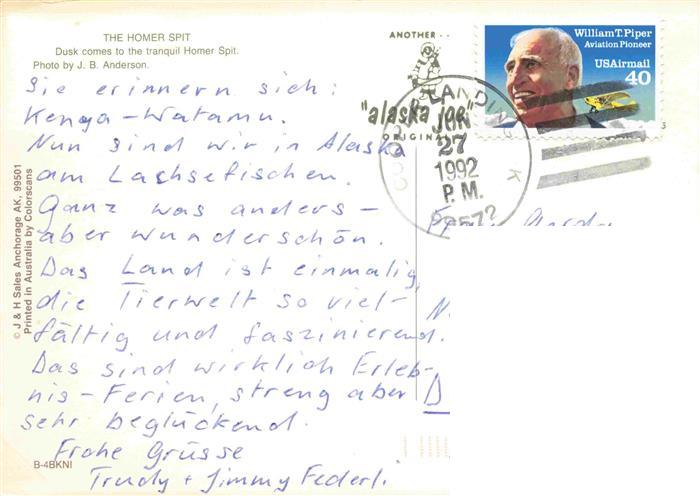 THE HOMER SPIT
Dusk comes to the tranquil Homer Spit.
Photo by J. B. Anderson.
Sie erinnern sich:
Kenya-Watamu.
Nun sind wir in Alaska
am Lachsefischen.
Ganz was anders-
aber wunderschön.
Das Land ist einmalig,
die Tierwelt so viel-
fältig und faszinierend.
Das sind wirklich Erleb-
nis-Ferien, streng aber
sehr beglückend.
Frohe Grüsse
Trudy + Jimmy Federli
B-4BKNI
© J & H Sales Anchorage AK, 99501
Printed in Australia by Colorscans
ANOTHER
"alaska joe"
ORIGINAL
LANDING
JUN
27
1992
P.M.
99572
William T. Piper
Aviation Pioneer
USAirmail
40
Frau
N
D